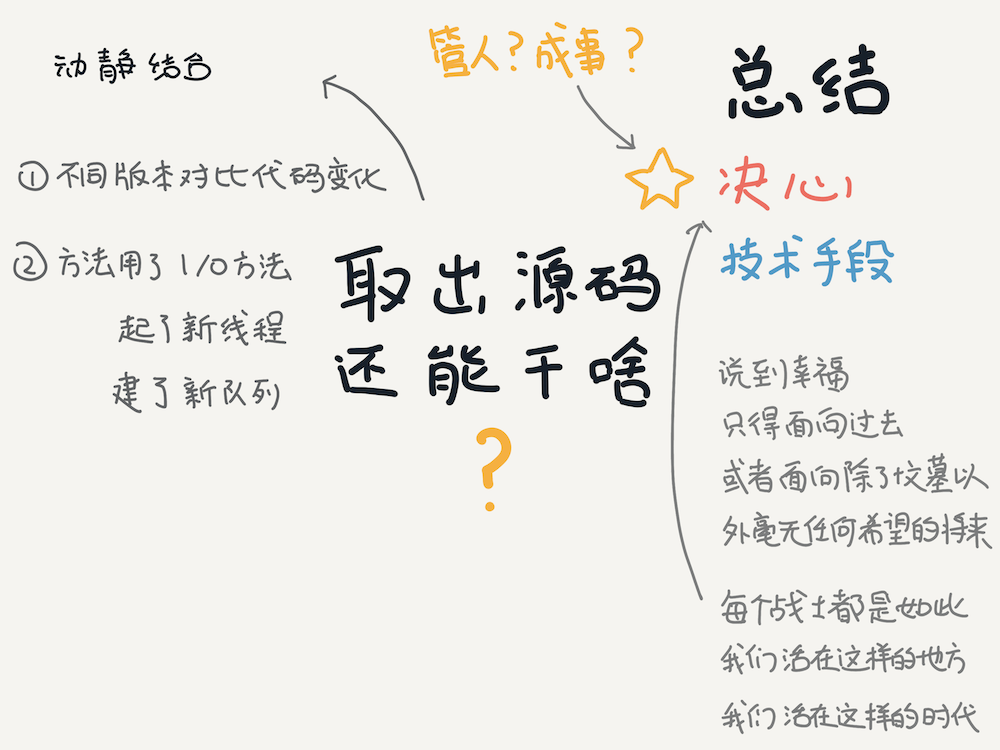 动静结合
① 不同版本对比代码变化
② 方法用了 I/O 方法
起了新线程
建了新队列
取出源码
还能干啥
?
管人?成事?
总结
决心
技术手段
说到幸福
只得面向过去
或者面向除了坟墓以
外毫无任何希望的将来
每个战士都是如此
我们活在这样的地方
我们活在这样的时代